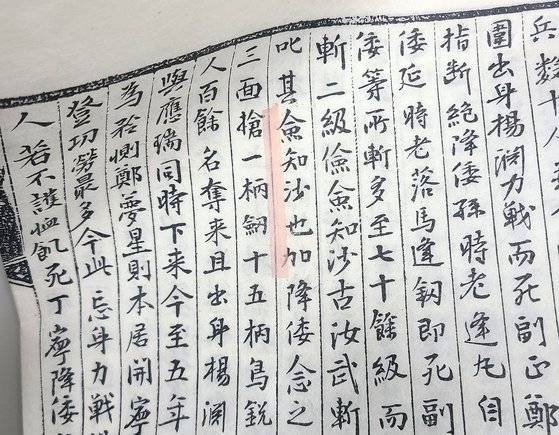 兵數十
圍出身楊渊力戰而死副正鄭
指斷絶降倭孫時老逢丸自
倭延時老落馬逢釰即死副
倭等所斬多至七十餘級而
斬二級儉僉知沙古汝武斬
叱其僉知沙也加降倭念之
三面槍一柄釰十五柄鳥銃
人百餘名奪来且出身楊渊
與應瑞同時下来今至五年
為矜惻鄭夢星則本居開寧
登功勞最多今此忘身力戰
人若不護恤飢死丁寧降倭